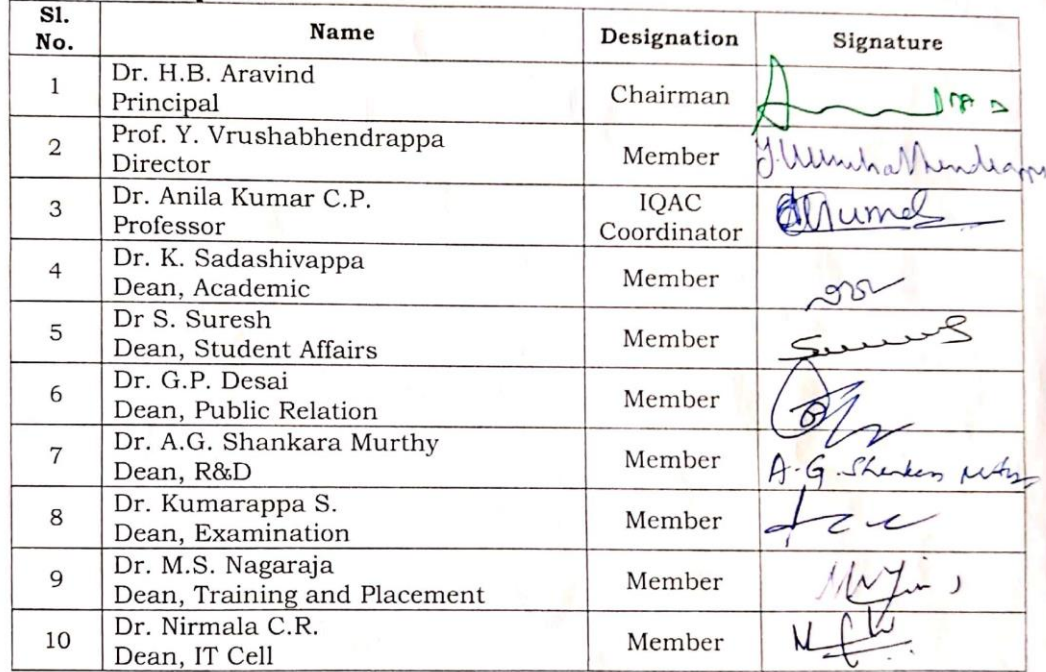 Sl. No. Name Designation Signature
1 Dr. H.B. Aravind Principal Chairman
2 Prof. Y. Vrushabhendrappa Director Member Y. Vrushabhendrappa
3 Dr. Anila Kumar C.P. Professor IQAC Coordinator
4 Dr. K. Sadashivappa Dean, Academic Member
5 Dr S. Suresh Dean, Student Affairs Member
6 Dr. G.P. Desai Dean, Public Relation Member
7 Dr. A.G. Shankara Murthy Dean, R&D Member A.G.
8 Dr. Kumarappa S. Dean, Examination Member
9 Dr. M.S. Nagaraja Dean, Training and Placement Member
10 Dr. Nirmala C.R. Dean, IT Cell Member